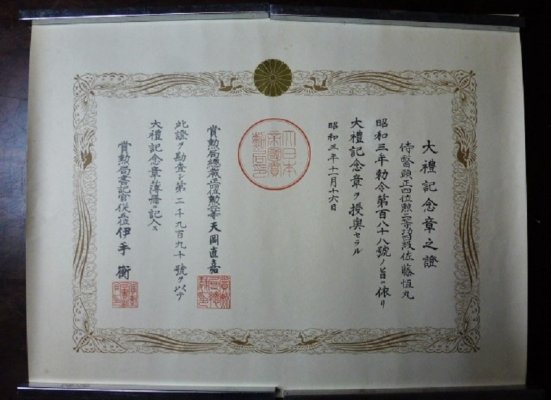 大禮記念章之證
侍醫頭正四位勲二等 佐藤恒丸
昭和三年勅令第百八十八號ノ旨ニ依リ
大禮記念章ヲ授與セラル
昭和三年十一月十六日
賞勲局總裁正四位勲二等 天岡直嘉
此證ヲ勘査シ第二千九百九十號ヲ以テ
大禮記念章簿冊ニ記入ス
賞勲局書記官從五位 伊手衡
大日本帝國賞勲局印